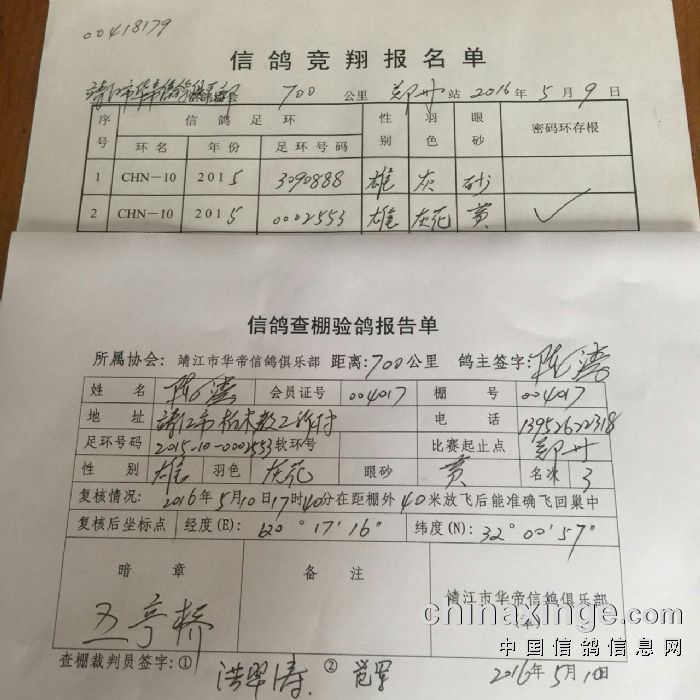 00418179
信鸽竞翔报名单
靖江市华帝信鸽俱乐部 700 公里 郑州 站 2016年5月9日
序号 信鸽足环 性别 羽色 眼砂 密码环存根
环名 年份 足环号码
1 CHN-10 2015 3090888 雄 灰 砂
2 CHN-10 2015 0002553 雄 灰花 黄 ✓
信鸽查棚验鸽报告单
所属协会: 靖江市华帝信鸽俱乐部 距离:700公里 鸽主签字:陈涛
姓名 陈涛 会员证号 004017 棚号 004017
地址 靖江市 电话 13952622318
足环号码 2015-10-0002553 软环号 比赛起止点 郑州
性别 雄 羽色 灰花 眼砂 黄 名次 3
复核情况: 2016年5月10日17时40分在距棚外40米放飞后能准确飞回巢中
复核后坐标点 经度(E): 120°17′16″ 纬度(N): 32°00′57″
暗章 备注
五亭桥 靖江市华帝信鸽俱乐部
(章)
查棚裁判员签字:① 洪翠涛 ②
2016年5月10日
chinaxinge.com
中国信鸽信息网